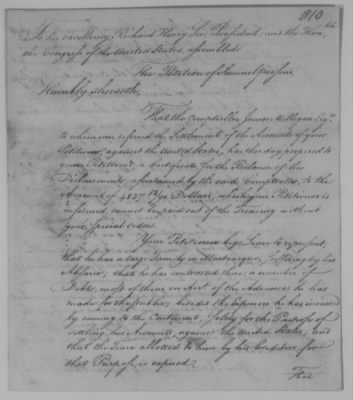 310
To his excellency Richard Henry Lee, President, and the Honble
the Congress of the United States, assembled
The Petition of Samuel
Humbly sheweth,
That the Comptroller James Milligan Esqr
to whom was referred the Settlement of the Accounts of your
Petitioner, against the United States, has this day proposed to
your Petitioner a Certificate for the Balance of his
Disbursements, ascertained by the said Comptroller, to the
Amount of Dollars, which your Petitioner is
informed cannot be paid out of the Treasury without
your special order.
Your Petitioner begs leave to represent,
that he has a large Family in Martinique, suffering by his
Absence; that he has contracted there, a number of
Debts, most of them on Acct of the Advances he has
made for the public; besides the Expences he has incurred
by coming to the Continent, solely for the Purpose of
settling his Accounts, against the United States; and
that the Time allowed to him by his Creditors for
that Purpose, is expired.